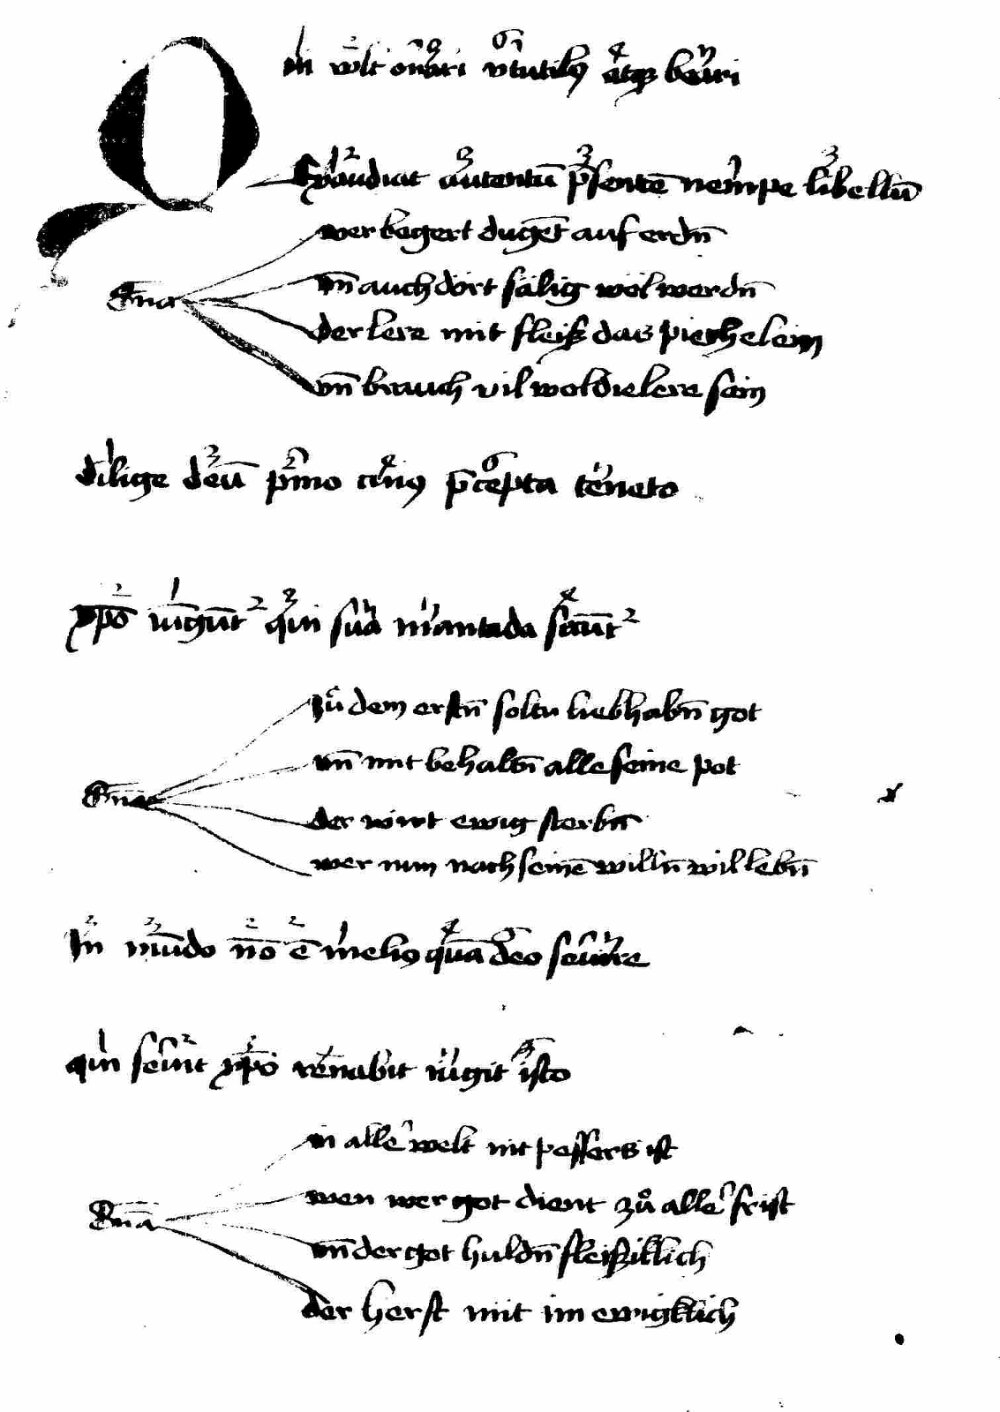 Qui wlt orn̄ari v̄tutibꝯ atqꝫ beari
Exaudiat attentū p̄sentē nempe libellū
wer begert dugēt auf erdn̄
vn̄ auch dort sälig wol werdn̄
der lere mit fleiß das piechelein
vn̄ brauch vil wol die lere sein
dilige deū p̄mo cuiꝯ p̄cepta teneto
xp̄o iūgūt² qui sua mandata seq̄ūt²
zů dem erstn̄ soltu liebhabn̄ got
vn̄ mit behaltn̄ alle seine pot
der wirt ewig sterbn̄
wer nun nach seinē willn̄ wil lebn̄
In mūdo nō ē meliꝯ quā deo seruire
qui seruit xp̄o regnabit iūgit isto
in alle welt nit pessers ist
wen wer got dient zů alle frist
vn̄ der got huldn̄ fleißiklich
der herst mit im ewigklich